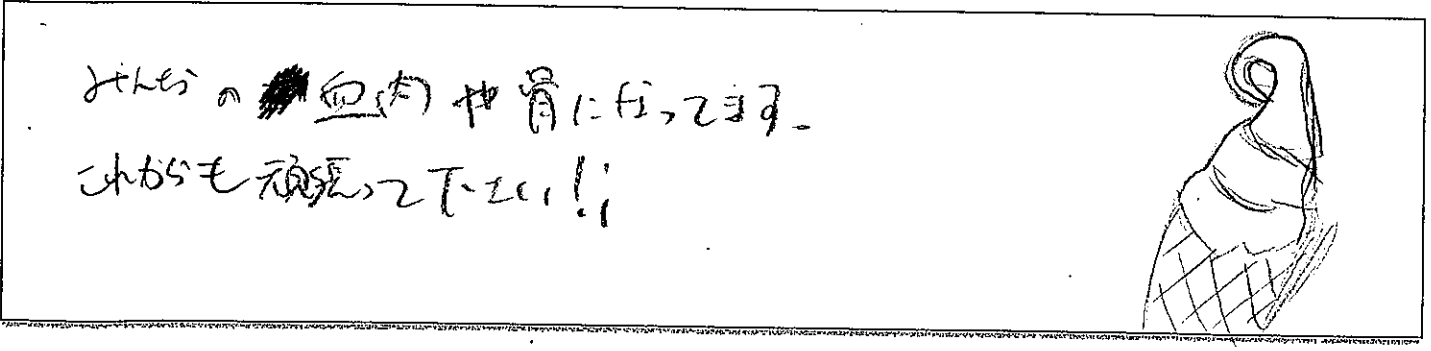 みんなの血肉や骨になってます。
これからも頑張って下さい!!